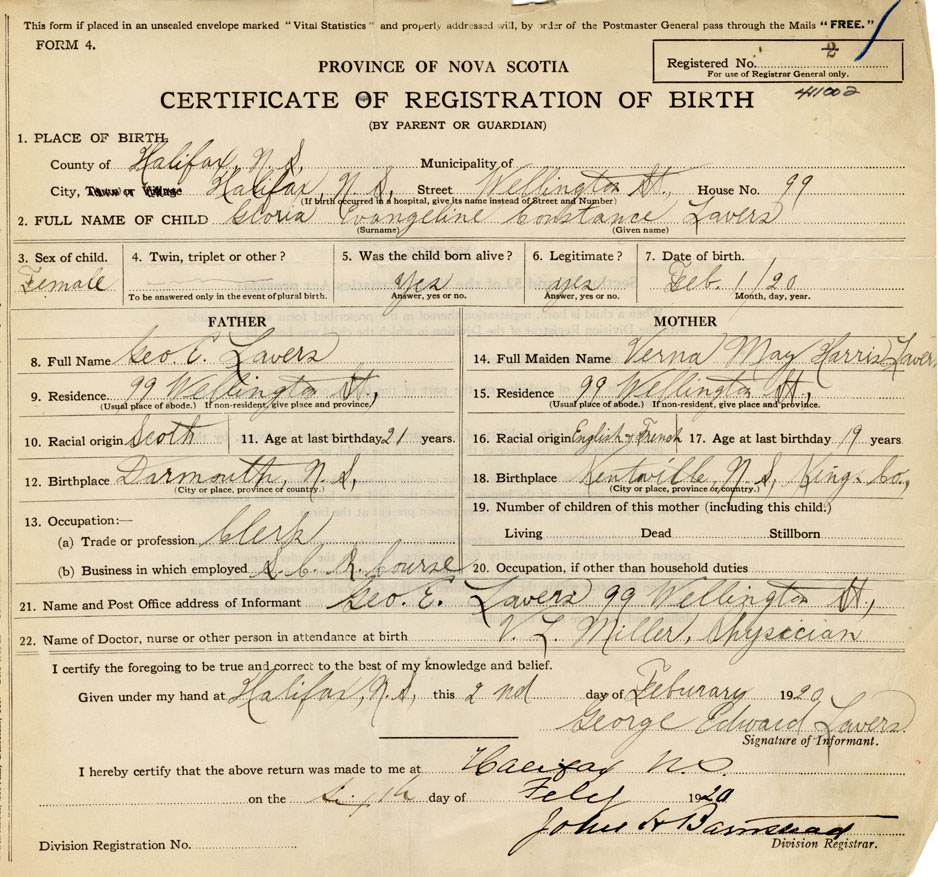 This form if placed in an unsealed envelope marked "Vital Statistics" and properly addressed will, by order of the Postmaster General pass through the Mails "FREE."
FORM 4.
Registered No. 2
For use of Registrar General only.
411002
PROVINCE OF NOVA SCOTIA
CERTIFICATE OF REGISTRATION OF BIRTH
(BY PARENT OR GUARDIAN)
1. PLACE OF BIRTH,
County of Halifax, N.S, Municipality of
City, Town or Village Halifax, N.S, Street Wellington St., House No. 99
(If birth occurred in a hospital, give its name instead of Street and Number)
2. FULL NAME OF CHILD Gloria Evangeline Constance Lavers
(Surname) (Given name)
3. Sex of child. 4. Twin, triplet or other? 5. Was the child born alive? 6. Legitimate? 7. Date of birth:
Female yes yes Feb. 1/20
To be answered only in the event of plural birth. Answer, yes or no. Answer, yes or no. Month, day, year.
FATHER
8. Full Name Geo. E. Lavers
9. Residence. 99 Wellington St.,
(Usual place of abode.) If non-resident, give place and province,)
10. Racial origin Scoth 11. Age at last birthday 21 years.
12. Birthplace Darmouth, N.S,
(City or place, province or country.)
13. Occupation:—
(a) Trade or profession Clerk
(b) Business in which employed S.C.R. Course
MOTHER
14. Full Maiden Name Verna May Harris Lavers
15. Residence 99 Wellington St.,
(Usual place of abode.) If non-resident, give place and province.
16. Racial origin English & French 17. Age at last birthday 19 years.
18. Birthplace Kentville, N.S, Kings Co.,
(City or place, province or country.)
19. Number of children of this mother (including this child.)
Living Dead Stillborn
20. Occupation, if other than household duties
21. Name and Post Office address of Informant Geo. E. Lavers 99 Wellington St.,
22. Name of Doctor, nurse or other person in attendance at birth V. L. Miller, Physician
I certify the foregoing to be true and correct to the best of my knowledge and belief.
Given under my hand at Halifax, N.S, this 2nd day of Feburary 1920
George Edward Lavers.
Signature of Informant.
I hereby certify that the above return was made to me at Halifax N.S.
on the sixth day of Feby 1920
John H Barnstead
Division Registration No. Division Registrar.